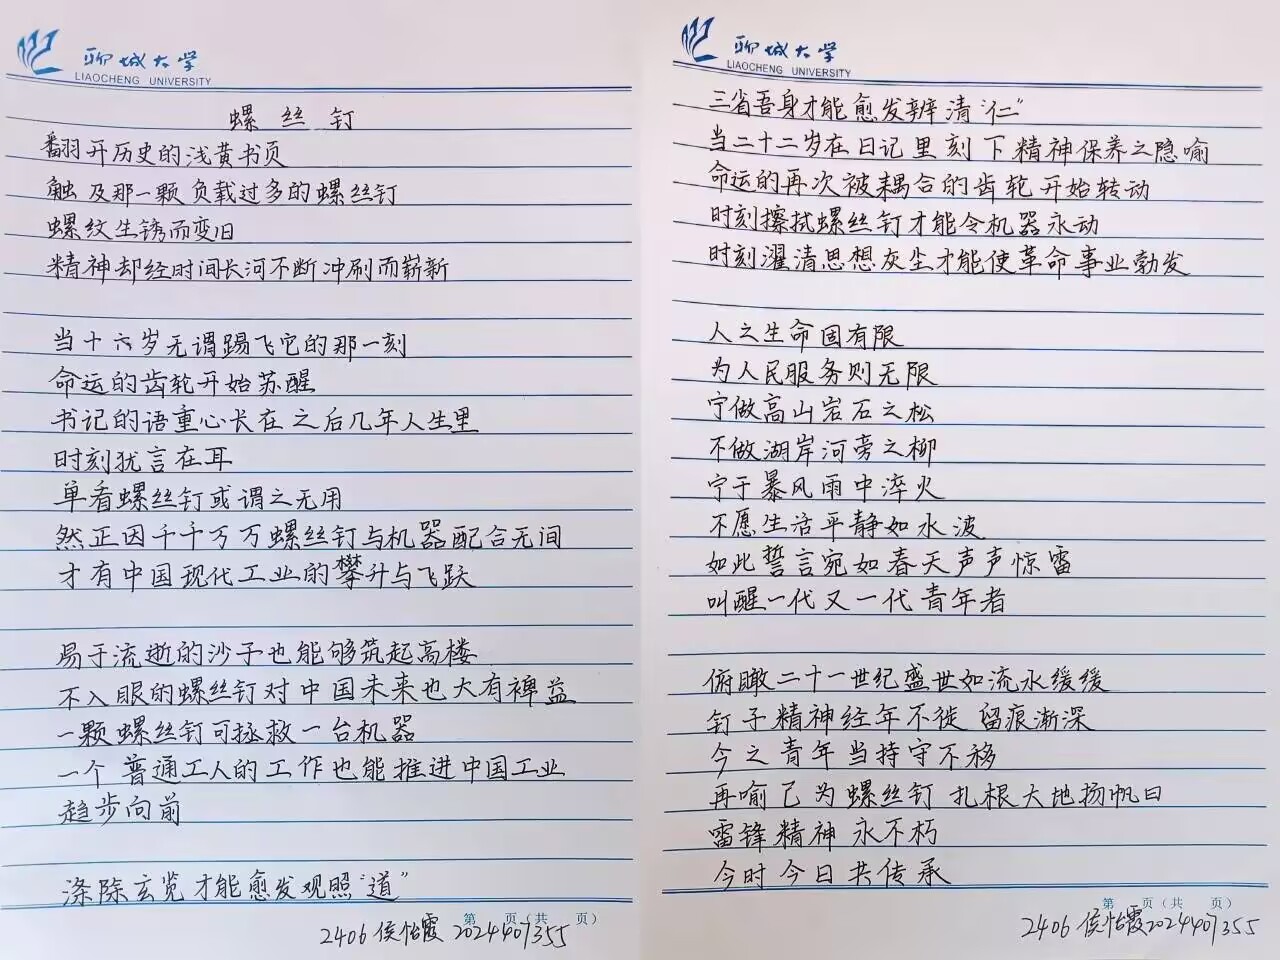 聊城大学
LIAOCHENG UNIVERSITY
螺丝钉
翻开历史的浅黄书页
触及那一颗负载过多的螺丝钉
螺纹生锈而变旧
精神却经时间长河不断冲刷而崭新
当十六岁无谓踢飞它的那一刻
命运的齿轮开始苏醒
书记的语重心长在之后几年人生里
时刻犹言在耳
单看螺丝钉或谓之无用
然正因千千万万螺丝钉与机器配合无间
才有中国现代工业的攀升与飞跃
易于流逝的沙子也能够筑起高楼
不入眼的螺丝钉对中国未来也大有裨益
一颗螺丝钉可拯救一台机器
一个普通工人的工作也能推进中国工业
趋步向前
涤除玄览才能愈发观照“道”
第 页(共 页)
2406 侯怡霞 2024407355
聊城大学
LIAOCHENG UNIVERSITY
三省吾身才能愈发辨清“仁”
当二十二岁在日记里刻下精神保养之隐喻
命运的再次被耦合的齿轮开始转动
时刻擦拭螺丝钉才能令机器永动
时刻濯清思想灰尘才能使革命事业勃发
人之生命固有限
为人民服务则无限
宁做高山岩石之松
不做湖岸河旁之柳
宁于暴风雨中淬火
不愿生活平静如水波
如此誓言宛如春天声声惊雷
叫醒一代又一代青年者
俯瞰二十一世纪盛世如流水缓缓
钉子精神经年不徙 留痕渐深
今之青年当持守不移
再喻己为螺丝钉 扎根大地扬帆日
雷锋精神永不朽
今时今日共传承
第 页(共 页)
2406 侯怡霞 2024407355